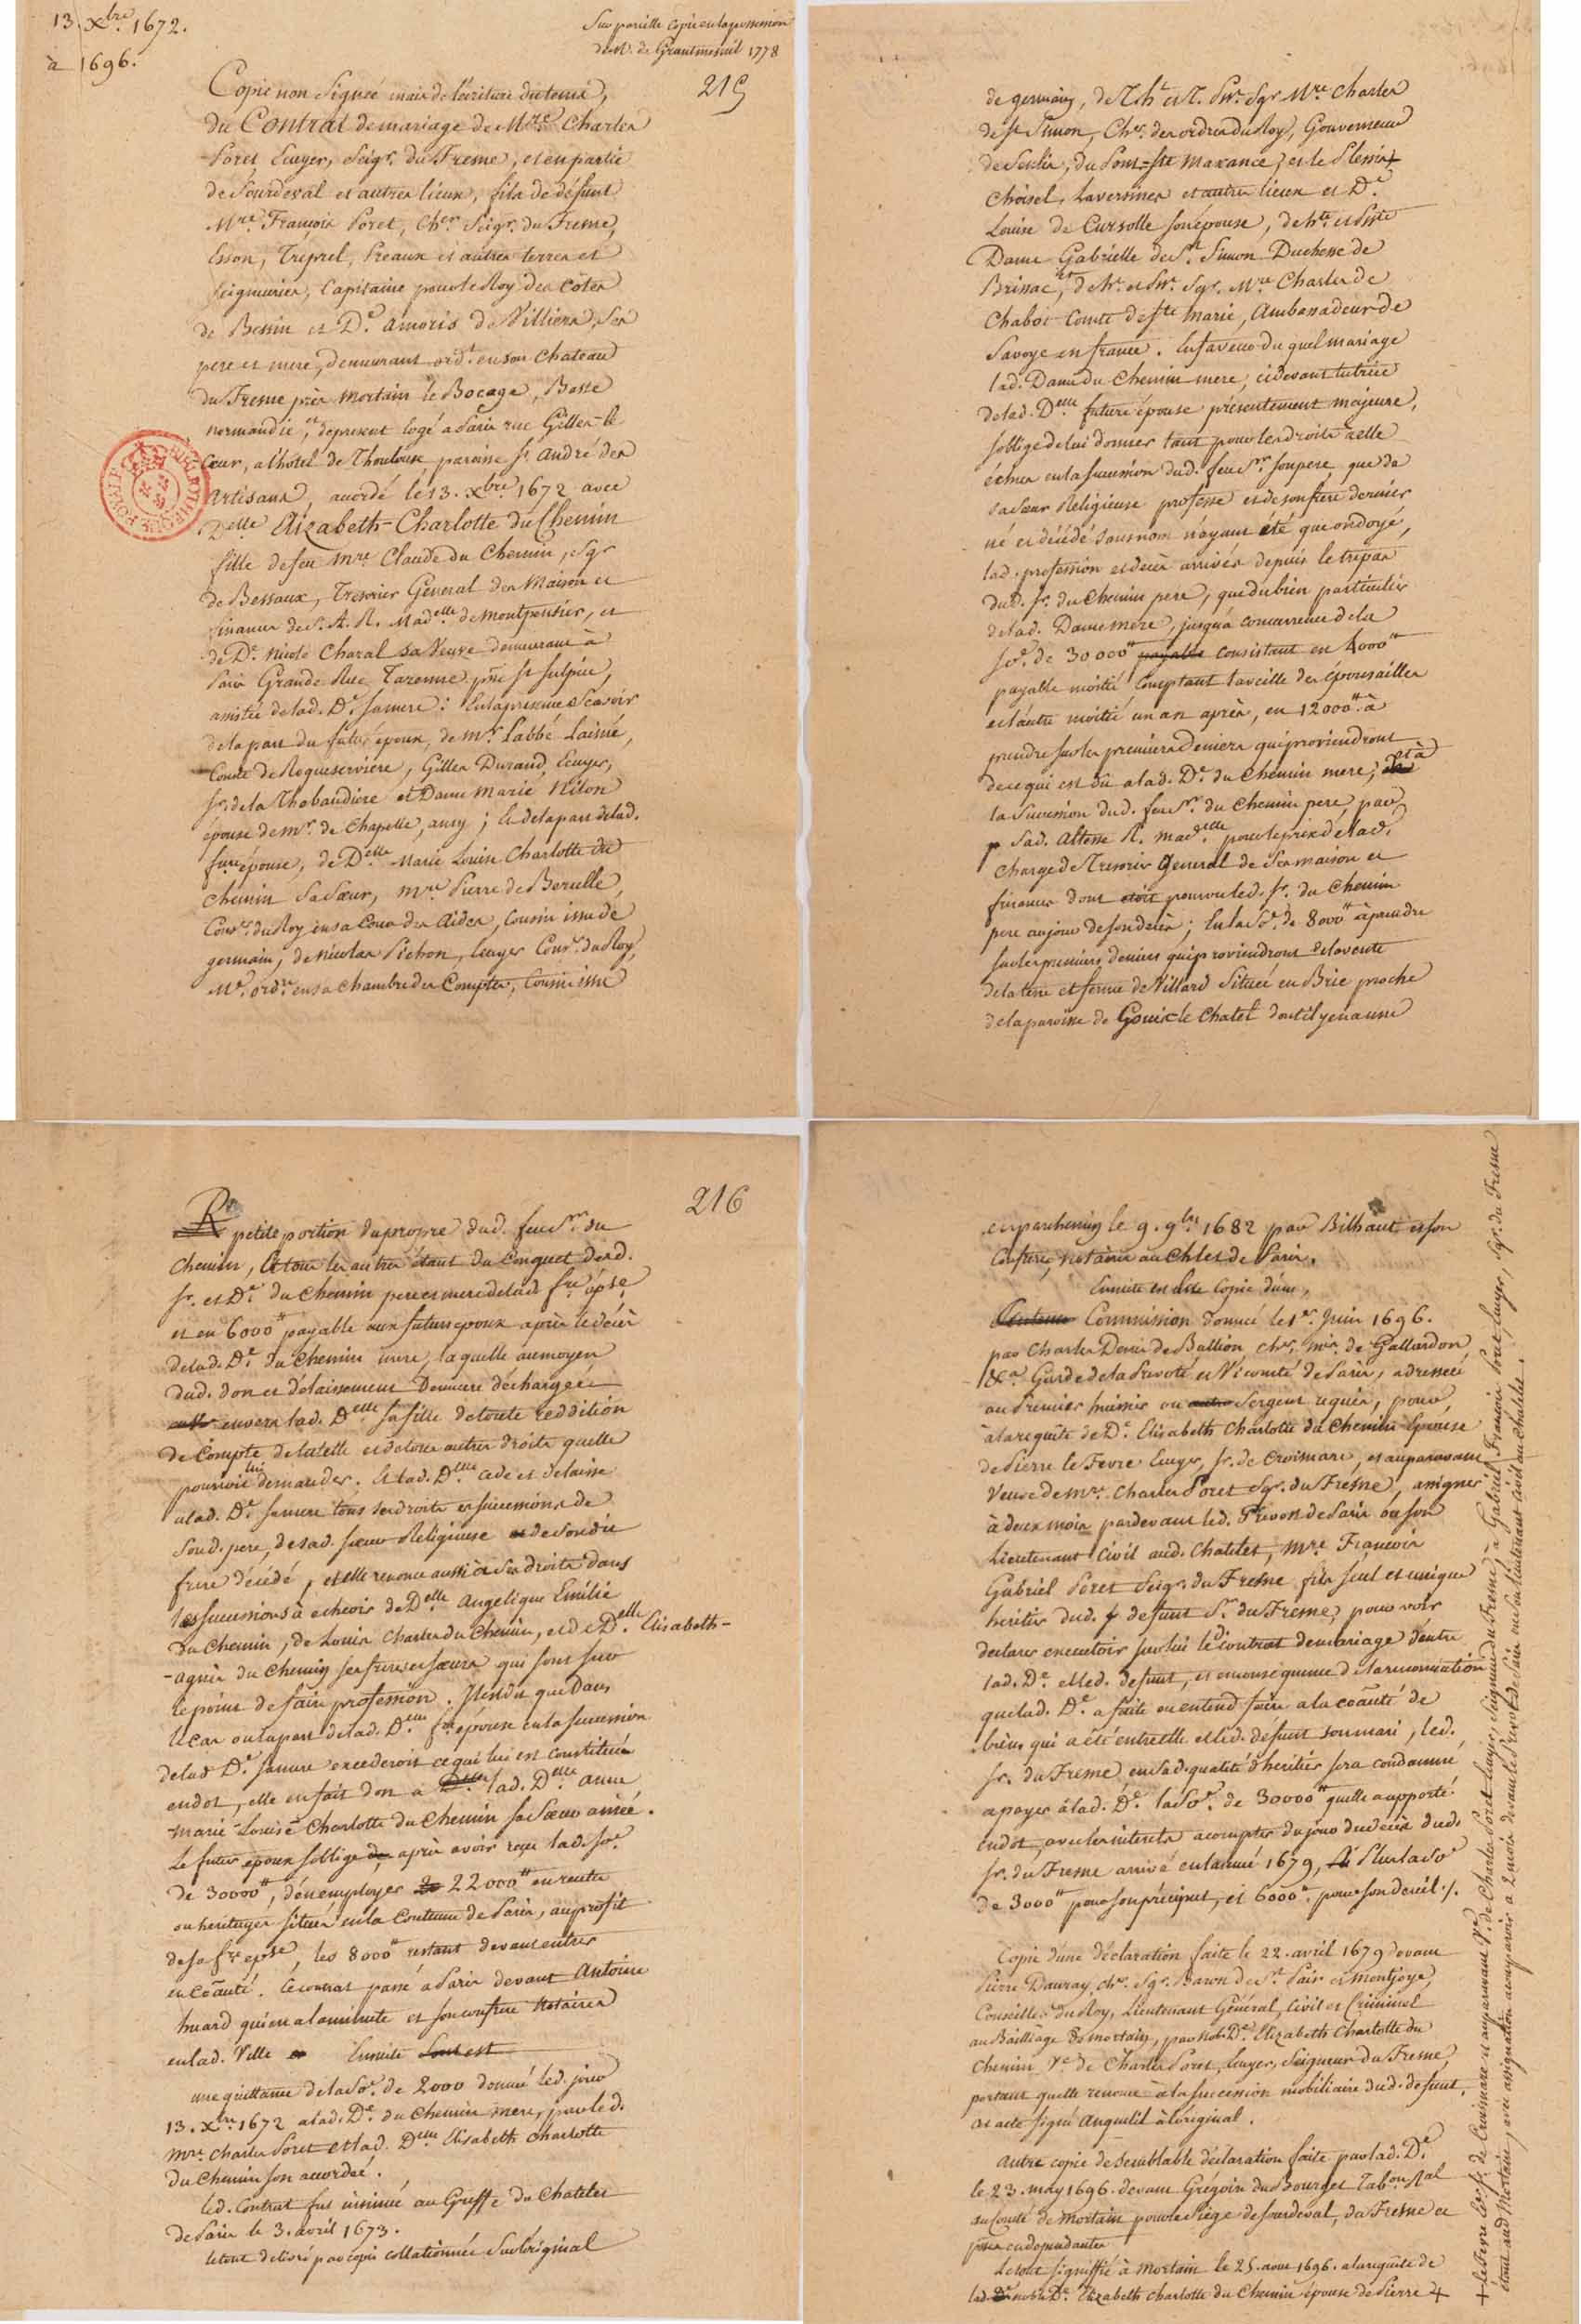 13. Xbre. 1672.
à 1696.
Sur pareille copie en la possession
de Mr. de Grantmesnil 1778
215
Copie non Signée mais de l'écriture du tems,
du Contrat de mariage de Mre. Charles
Poret, Ecuyer, Seigr. du Fresne, et en partie
de Sourdeval et autres lieux, fils de défunt
Mre. François Poret, Cher. Seigr. du Fresne,
Esson, Tréprel, Preaux et autres terres et
seigneuries, Capitaine pour le Roy des côtes
de Bessin et De. Amoris de Villiers, ses
pere et mere, demeurant ordt. en son Chateau
du Fresne près Mortain le Bocage, Basse
normandie, et de present logé a Paris rue Gilles-le
Cœur, a l'hôtel de Thoulouse paroisse St. André des
Artisans, accordé le 13. Xbre 1672 avec
Delle Elizabeth-Charlotte du Chemin
fille de feu Mre. Claude du Chemin, Sgr
de Bessaux, Tresorier General des Maison et
finances de S. A. R. Madelle. de Montpensier, et
de De. Nicole Charal sa Veuve demeurant à
Paris Grande Rue Tarenne psse St Sulpice,
assistée de lad. De. sa mere : En la presence Scavoir
de la part du futur époux, de Mr. Labbé Laisné,
Comte de Roqueserviere, Gilles Durand, Ecuyer,
Sr. de la Thebaudiere et Dame Marie Niton
épouse de Mr. de Chapelle, amy ; Et de la part de lad.
fure épouse, de Delle Marie Louise Charlotte du
Chemin Sa Sœur, Mre Pierre de Berulle,
Consr. du Roy en sa Cour des Aides, Cousin issu de
germain, de Nicolas Pichon, Ecuyer Consr. du Roy,
Me. ordre. en sa Chambre des Comptes, Cousin issu
de germain, de Th. et P. Sgr. Mre Charles
de St Simon, Cher. des ordres du Roy, Gouverneur
de Senlis, du Pont-Ste Maxance, et le Plessix
Choisel, Laversines et autres lieux et De.
Louise de Cursolle son épouse, de hte. et Psste
Dame Gabrielle de St. Simon Duchesse de
Brissac, et de ht. et Psst. Sgr. Mre Charles de
Chabot Comte de Ste Marie, Ambassadeur de
Savoye en france. En faveur du quel mariage
lad. Dame du Chemin mere, cidevant tutrice
de lad. Delle future épouse présentement majeure,
s'oblige de lui donner tant pour les droits a elle
échus en la succession dud. feu Sr. son pere, que de
sa Sœur Religieuse professe et de son frere dernier
né et décédé sans nom n'ayant été que ondoyé,
lad. profession et decès arrivés depuis le trepas
dud. Sr. du Chemin pere, que du bien particulier
de lad. Dame mere, jusqu'a concurrence de la
Soe. de 30000tt payable consistant en 4000tt
payable moitié comptant la veille des épousailles
et l'autre moitié un an après, en 12000tt. à
prendre sur les premiers Deniers qui proviendront
de ce qui est dû a lad. De. du Chemin mere, et à
la Succession dud. feu Sr. du Chemin pere, par
Sad. Altesse R. Madelle pour le prix de lad.
charge de Tresorier General de Ses maison et
finances dont etoit pourvu led. Sr. du Chemin
pere au jour de son decès ; En la Soe. de 8000tt à prendre
sur les premiers deniers qui proviendront de la vente
de la terre et ferme de Villard Située en Brie proche
de la paroisse de Gouix le Chatel dont il y en a une
216
petite portion du propre dud. feu Sr. du
Chemin, et tous les autres étant du Conquet desd.
Sr. et De. du Chemin pere et mere de lad. fre épse
et en 6000tt payable aux futurs epoux après le décès
de lad. De. du Chemin mere, laquelle au moyen
dud. don et délaissement Demeure déchargée
envers lad. Delle sa fille de toute reddition
de Compte de tutelle et de tous autres droits quelle
pourroit lui demander. Et lad. Delle cede et delaisse
a lad. De. sa mere tous ses droits es successions de
Sond. pere, de sad. sœur Religieuse et de Sondit
frere décédé, et elle renonce aussi à ses droits dans
les successions à echeoir de Delle Angelique Emilie
du Chemin, de Louis Charles du Chemin, et de Delle. Elisabeth-
-agnès du Chemin ses freres et sœurs qui sont sur
le point de faire profession. Il est dit que Dans
le cas ou la part de lad. Delle fre épouse en la succession
de lad De. sa mere excederoit ce qui lui est constitué
en dot, elle en fait don a lad. Delle anne
Marie Louise Charlotte du Chemin sa Sœur ainée.
Le futur epoux s'oblige après avoir reçu lad. Soe.
de 30000tt, d'en employer 22000tt en rentes
ou heritages situés en la Coutume de Paris, au profit
de sa fre epse, les 8000tt restant devant entrer
en Coãuté. Le contrat passé a Paris devant Antoine
huard qui en a la minute et son confrere Notaires
en lad. Ville Ensuite
une quittance de la Soe. de 2000 donné led. jour
13. Xbre 1672 a lad. De. du Chemin mere, par led.
Mre. Charles Poret et lad. Delle Elisabeth Charlotte
du Chemin son accordée.
Led. Contrat fut insinué au Greffe du Chatelet
de Paris le 3. avril 1673.
Le tout delivré par copie collationnée Sur l'original
en parchemin le 9. 9bre 1682 par Bilhaut et son
Confrere, notaires au Chlet de Paris.
Ensuite est la Copie d'une
Commission donnée le 1er. Juin 1696.
par Charles Denis de Bullion chr. Mis. de Gallardon,
&a. Garde de la Prevoté et Vicomté de Paris, adressée
au Premier huissier ou Sergent requis, pour
à la requête de De. Elisabeth Charlotte du Chemin Epouse
de Pierre le Fevre Ecuyer, Sr. de Croismare, et auparavant
Veuve de Mre. Charles Poret Sgr. du Fresne, assigner
à deux mois pardevant led. Prevost de Paris ou son
Lieutenant Civil aud. Chatelet, Mre. François
Gabriel Poret Seigr. du Fresne fils seul et unique
heritier dud. defunt Sr. du Fresne, pour voir
declarer executoir sur lui led. contrat de mariage d'entre
lad. De. et led. defunt, et en consequence de la renonciation
que lad. De. a faite ou entend faire a la coãuté de
biens qui a été entr'elle et led. défunt son mari, led.
Sr. du Fresne en sad. qualité d'heritier sera condamné
a payer à lad. De. la Soe. de 30000tt quelle a apporté
en dot, avec les interets a compter du jour du decès dud.
Sr. du Fresne arrivé en l'année 1679, Plus la Soe
de 3000tt pour son préciput, et 6000tt. pour son deuil ./.
Copie d'une déclaration faite le 22. avril 1679 devant
Pierre Dauray, chr. Sgr. Baron de St Pair et Montjoye,
Conseiller du Roy, Lieutenant Général, Civil et Criminel
au Bailliage de Mortain, par Nob. De. Elizabeth Charlotte du
Chemin Ve. de Charles Poret, Ecuyer, Seigneur du Fresne,
portant quelle renonce à la succession mobiliaire dud. defunt,
Cet acte signé Anquetil à l'original.
Autre copie de semblable déclaration faite par lad. De.
le 23. may 1696. devant Grégoire du Bourget Tabon. Ral
au Comté de Mortain pour le Siége de Sourdeval, du Fresne et
en dependantes
Le tout signiffié à Mortain le 25. aout 1696. a la requête de
lad. noble De. Elizabeth Charlotte du Chemin épouse de Pierre +
+ Le Fevre Ecr. Sr. de Croismare et auparavant Ve. de Charles Poret Ecuyer, Seigneur du Fresne, à Gabriel François Poret Ecuyer, Sgr. du Fresne
étant aud Mortain, avec assignation a comparoir a 2 mois devant le Prevot de Paris ou son Lieutenant Civil au Chatelet.